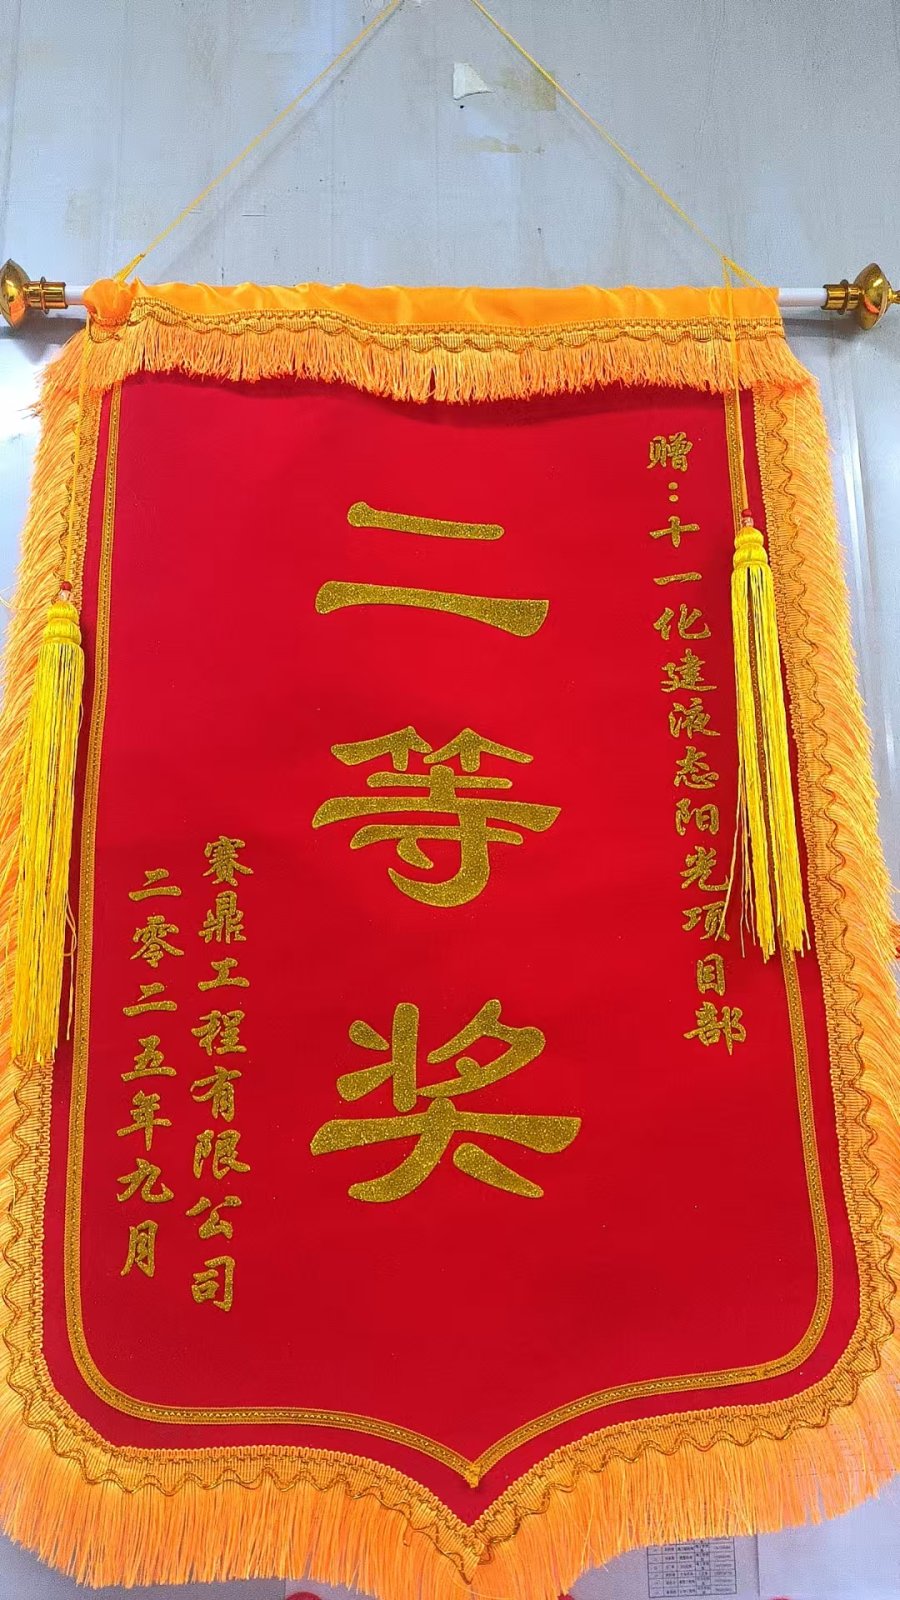 赠：十一化建液态阳光项目部
二等奖
赛鼎工程有限公司
二零二五年九月